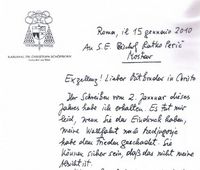 Roma, il 15 gennaio 2010
An S.E. Bischof Ratko Perić
Mostar
KARDINAL DR. CHRISTOPH SCHÖNBORN
Exzellenz! Lieber Mitbruder in Christo
Ihr Schreiben vom 2. Januar dieses
Jahres habe ich erhalten. Es tut mir
leid, wenn Sie den Eindruck haben,
meine Wallfahrt nach Medjugorje
habe dem Frieden geschadet. Sie
können sicher sein, daß das nicht meine
Absicht ist.